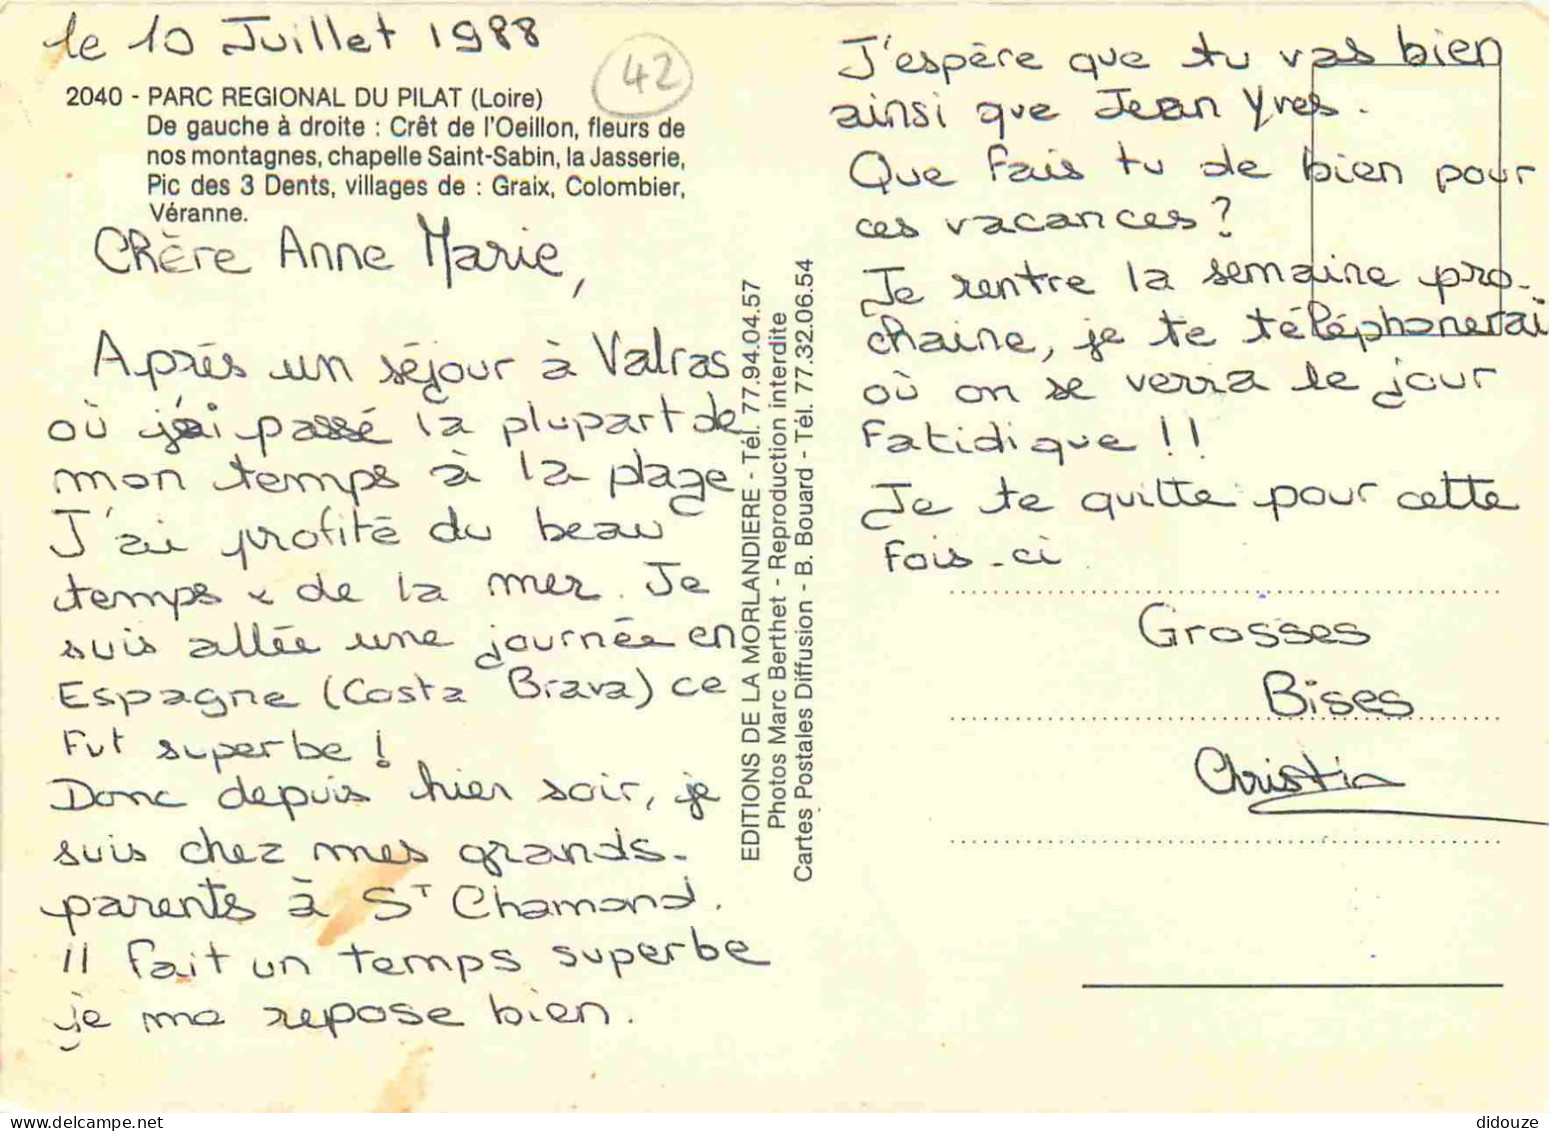 le 10 Juillet 1988
42
2040 - PARC REGIONAL DU PILAT (Loire)
De gauche à droite : Crêt de l'Oeillon, fleurs de
nos montagnes, chapelle Saint-Sabin, la Jasserie,
Pic des 3 Dents, villages de : Graix, Colombier,
Véranne.
Chère Anne Marie,
Après un séjour à Valras
où j'ai passé la plupart de
mon temps à la plage
J'ai profité du beau
temps de la mer. Je
suis allée une journée en
Espagne (Costa Brava) ce
fut superbe !
Donc depuis hier soir, je
suis chez mes grands-
parents à St Chamond.
Il fait un temps superbe
je me repose bien.
EDITIONS DE LA MORLANDIERE - Tél. 77.94.04.57
Photos Marc Berthet - Reproduction interdite
Cartes Postales Diffusion - B. Bouard - Tél. 77.32.06.54
J'espère que tu vas bien
ainsi que Jean Yves.
Que fais tu de bien pour
ces vacances ?
Je rentre la semaine pro-
chaine, je te téléphonerai
où on se verra le jour
fatidique !!
Je te quitte pour cette
fois-ci
Grosses
Bises
Christia
didouze